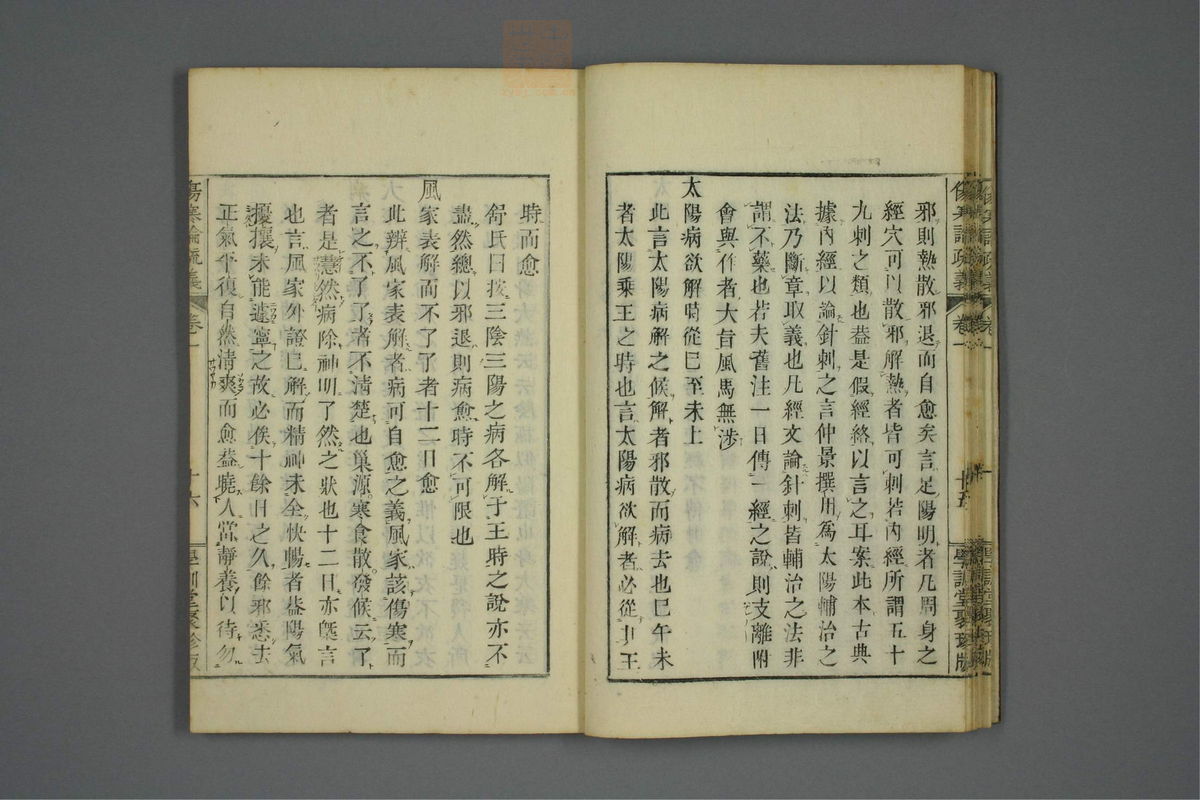 邪則熱散邪退而自愈矣言足陽明者凡周身之
經穴可以散邪解熱者皆可刺若內經所謂五十
九刺之類也葢是假經絡以言之耳案此本古典
據內經以論針刺之言仲景撰用爲太陽輔治之
法乃斷章取義也凡經文論針刺皆輔治之法非
謂不藥也若夫舊注一日傳一經之說則支離附
會與作者大旨風馬無涉
太陽病欲解時從巳至未上
此言太陽病解之候解者邪散而病去也巳午未
者太陽乘王之時也言太陽病欲解者必從其王
時而愈
舒氏曰按三陰三陽之病各解于王時之說亦不
盡然總以邪退則病愈時不可限也
風家表解而不了了者十二日愈
此辨風家表解者病可自愈之義風家該傷寒而
言之不了了者不淸楚也巢源寒食散發候云了
者是慧然病除神明了然之狀也十二日亦旣言
也言風家外證已解而精神未全快暢者葢陽氣
擾攘未能遽寧之故必俟十餘日之久餘邪悉去
正氣平復自然淸爽而愈葢曉人當靜養以待勿
傷寒論疏義
卷一
十五
學訓堂聚珍版
十六